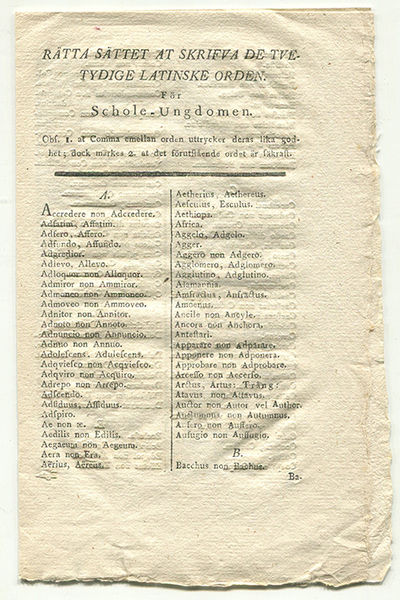 RÄTTA SÄTTET AT SKRIFVA DE TVE-
TYDIGE LATINSKE ORDEN.
För
Schole-Ungdomen.
Obs. 1. at Comma emellan orden uttrycker deras lika god-
het; dock märkes 2. at det förutstående ordet är säkrast.
A.
Accredere non Adcredere.
Adfatim, Affatim.
Adfero, Affero.
Adfundo, Affundo.
Adgredior.
Adlevo, Allevo.
Adloquor non Alloquor.
Admiror non Ammiror.
Admoneo non Ammoneo.
Admoveo non Ammoveo.
Adnitor non Annitor.
Adnoto non Annoto.
Adnuncio non Annuncio.
Adnuo non Annuo.
Adolescens. Adulescens.
Adqviesco non Acqviesco.
Adqviro non Acqviro.
Adrepo non Arrepo.
Adscendo.
Adsiduus, Assiduus.
Adspiro.
Ae non œ.
Aedilis non Edilis.
Aegaeum non Aegeum.
Aera non Era.
Aërius, Aëreus.
Aetherius, Aethereus.
Aesculus, Esculus.
Aethiops.
Africa.
Aggelo, Adgelo.
Agger.
Aggero non Adgero.
Agglomero, Adglomero.
Agglutino, Adglutino.
Alamannia.
Amfractus, Anfractus.
Amoenus.
Ancile non Ancyle.
Ancora non Anchora.
Antestari.
Apparare non Adparare.
Apponere non Adponere.
Approbare non Adprobare.
Arcesso non Accerso.
Arctus, Artus: Trång:
Atavus non Attavus.
Auctor non Autor vel Author.
Auctumnus non Autumnus.
Aufero non Auffero.
Aufugio non Auffugio.
B.
Bacchus non Bachus.
Ba-